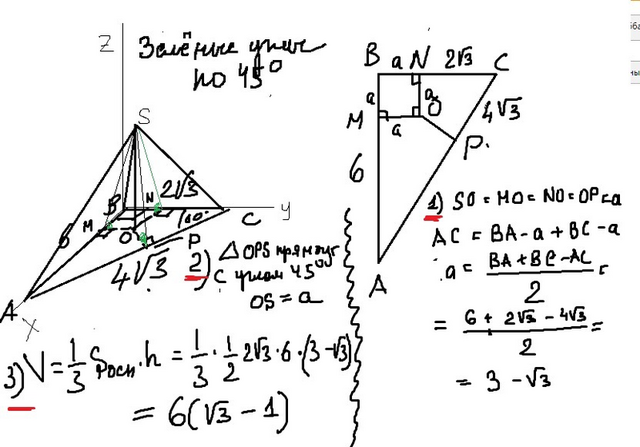 Z
Зелёные углы
по 45°
S
B
M
N
2√3
60°
C
y
6
O
P
4√3
A
X
2) △ OPS прямоуг
с углом 45°
OS = a
3) V = 1/3 Sосн · h = 1/3 · 1/2 2√3 · 6 · (3 - √3)
= 6(√3 - 1)
B a N 2√3 C
a
a
M
O
a
4√3
P
6
A
1) SO = MO = NO = OP = a
AC = BA - a + BC - a
a = (BA + BC - AC)/2 =
= (6 + 2√3 - 4√3)/2 =
= 3 - √3